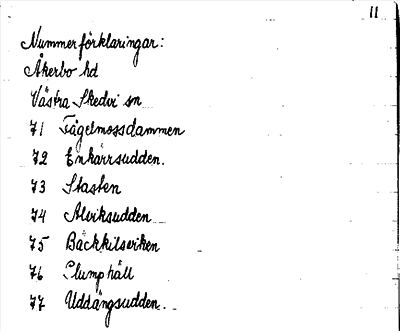 11
Nummerförklaringar:
Åkerbo hd
Västra Skedvi sn
71 Fågelmossdammen
72 Enkärrsudden.
73 Stasten
74 Alviksudden
75 Bäckkilsviken
76 Plumphäll
77 Uddängsudden.